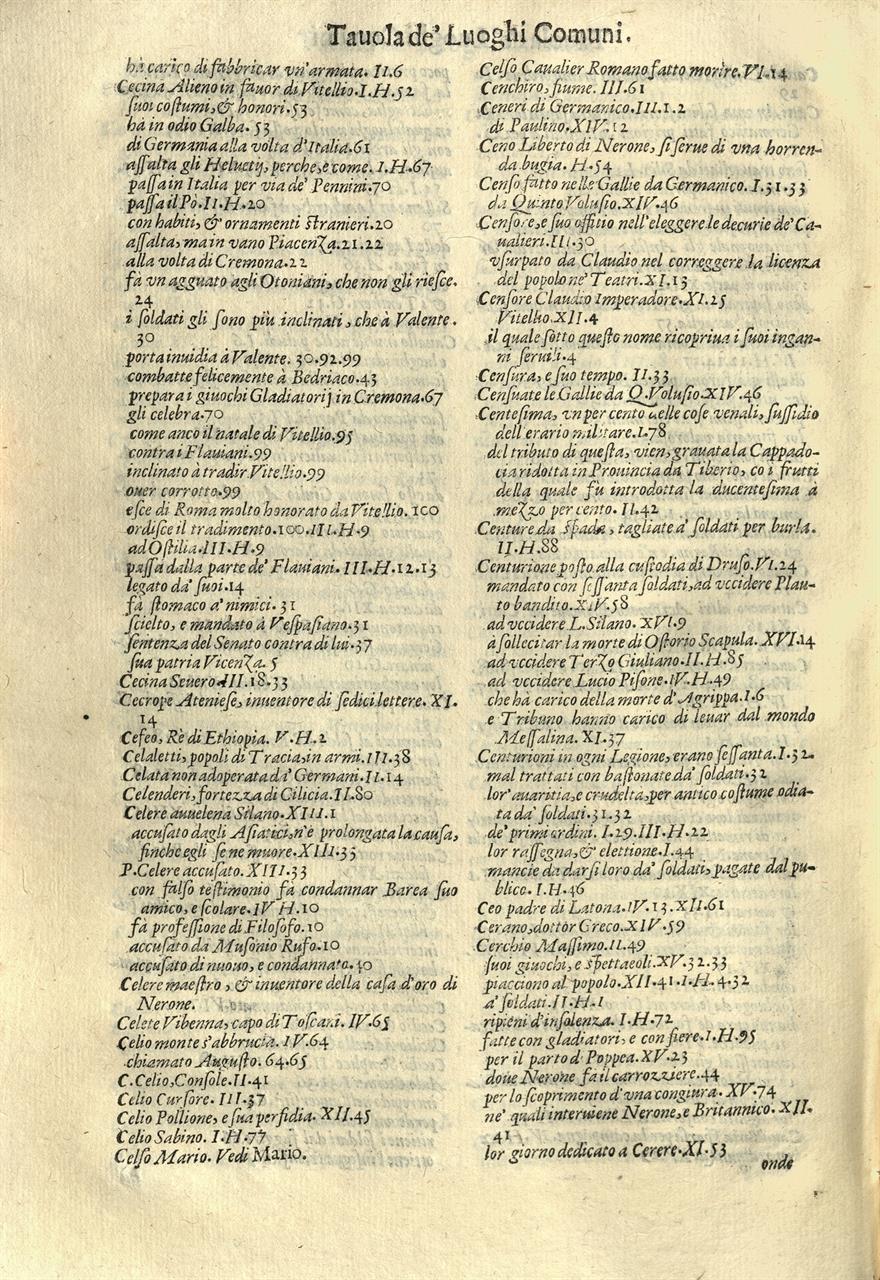 Tauola de' Luoghi Comuni.
hà carico di fabbricar vn'armata. II.6
Cecina Alieno in fauor di Vitellio.I.H.52
ſuoi coſtumi,& honori.53
hà in odio Galba. 53
di Germania alla volta d'Italia.61
aſſalta gli Heluetij, perche,e come. I.H.67
paſſa in Italia per via de' Pennini.70
paſſa il Pò.II.H.20
con habiti, & ornamenti ſtranieri.20
aſſalta, ma in vano Piacenza.21.22
alla volta di Cremona.22
fà vn agguato agli Otoniani, che non gli rieſce.
24
i ſoldati gli ſono più inclinati, che à Valente.
30
porta inuidia à Valente. 30.92.99
combatte felicemente à Bedriaco.43
prepara i giuochi Gladiatorij in Cremona.67
gli celebra.70
come anco il natale di Vitellio.95
contra i Flauiani.99
inclinato à tradir Vitellio.99
ouer corrotto.99
eſce di Roma molto honorato da Vitellio. 100
ordiſce il tradimento.100.III.H.9
ad Oſtilia.III.H.9
paſſa dalla parte de' Flauiani. III.H.12.13
legato da' ſuoi.14
fà ſtomaco a' nimici. 31
ſcielto, e mandato à Veſpaſiano.31
ſentenza del Senato contra di lui.37
ſua patria Vicenza. 5
Cecina Seuero III.18.33
Cecrope Atenieſe, inuentore di ſedici lettere. XI.
14
Cefeo, Rè di Ethiopia. V.H.2
Celaletti, popoli di Tracia,in armi.III.38
Celata non adoperata da' Germani.II.14
Celenderi, fortezza di Cilicia.II.80
Celere auuelena Silano.XIII.1
accuſato dagli Aſiatici,n'è prolongata la cauſa,
finche egli ſe ne muore.XIII.33
P.Celere accuſato. XIII.33
con falſo teſtimonio fà condannar Barea ſuo
amico, e ſcolare.IV H.10
fà profeſſione di Filoſofo.10
accuſato da Muſonio Rufo.10
accuſato di nuouo, e condannato.40
Celere maeſtro, & inuentore della caſa d'oro di
Nerone.
Celete Vibenna, capo di Toſcani. IV.65
Celio monte s'abbrucia. IV.64
chiamato Auguſto. 64.65
C.Celio,Conſole.II.41
Celio Curſore. III.37
Celio Pollione, e ſua perfidia. XII.45
Celio Sabino. I.H.77
Celſo Mario. Vedi Mario.
Celſo Caualier Romano fatto morire.VI.14
Cenchiro, fiume. III.61
Ceneri di Germanico.III.1.2
di Paulino.XIV.12
Ceno Liberto di Nerone, ſi ſerue di vna horren-
da bugia. H.54
Cenſo fatto nelle Gallie da Germanico. I.31.33
da Quinto Voluſio.XIV.46
Cenſore, e ſuo offitio nell'eleggere le decurie de' Ca-
ualieri.III.30
vſurpato da Claudio nel correggere la licenza
del popolo ne' Teatri.XI.13
Cenſore Claudio Imperadore.XI.25
Vitellio.XII.4
il quale ſotto queſto nome ricopriua i ſuoi ingan-
ni ſeruili.4
Cenſura, e ſuo tempo. II.33
Cenſuate le Gallie da Q.Voluſio.XIV.46
Centeſima, vn per cento delle coſe venali, ſuſſidio
dell'erario militare.I.78
del tributo di queſta, vien, grauata la Cappado-
cia ridotta in Prouincia da Tiberio, co i frutti
della quale fu introdotta la ducenteſima à
mezzo per cento. II.42
Centure da ſpada, tagliate a' ſoldati per burla.
II.H.88
Centurione poſto alla cuſtodia di Druſo.VI.24
mandato con ſeſſanta ſoldati,ad vccidere Plau-
to bandito.XIV.58
ad vccidere L.Silano. XVI.9
à ſollecitar la morte di Oſtorio Scapula. XVI.14
ad vccidere Terzo Giuliano.II.H.85
ad vccidere Lucio Piſone.IV.H.49
che hà carico della morte d'Agrippa.I.6
e Tribuno hanno carico di leuar dal mondo
Meſſalina. XI.37
Centurioni in ogni Legione, erano ſeſſanta.I.32.
mal trattati con baſtonate da' ſoldati.32
lor' auaritia,e crudeltà,per antico coſtume odia-
ta da' ſoldati.31.32
de' primi ordini. I.29.III.H.22
lor raſſegna,& elettione.I.44
mancie da darſi loro da' ſoldati, pagate dal pu-
blico. I.H.46
Ceo padre di Latona.IV.13.XII.61
Cerano,dottor Greco.XIV.59
Cerchio Maſſimo.II.49
ſuoi giuochi, e ſpettacoli.XV.32.33
piacciono al popolo.XII.41.I.H.4.32
a' ſoldati.II.H.1
ripieni d'inſolenza. I.H.72
fatte con gladiatori, e con fiere.I.H.95
per il parto d Poppea.XV.23
doue Nerone fa il carrozziere.44
per lo ſcoprimento d'vna congiura. XV.74
ne' quali interuiene Nerone,e Britannico. XII.
41
lor giorno dedicato a Cerere.XI.53
onde